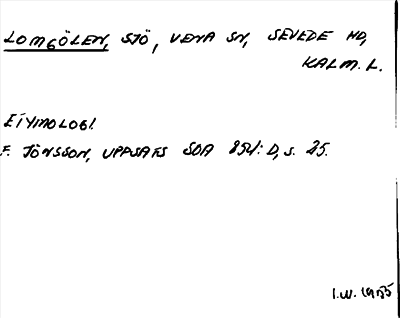 LOMGÖLEN, SJÖ, VENA SN, SEVEDE HD,
KALM. L.
ETYMOLOGI.
F. JÖNSSON, UPPSATS SOA 254: D, s. 25.
I.W. 1955